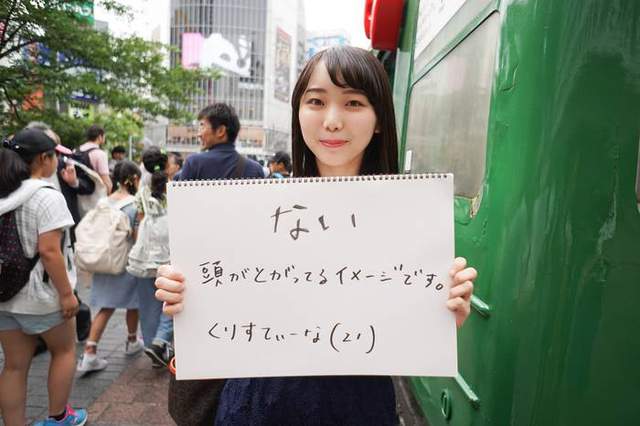 ない
頭がとがってるイメージです。
くりすてぃーな(21)